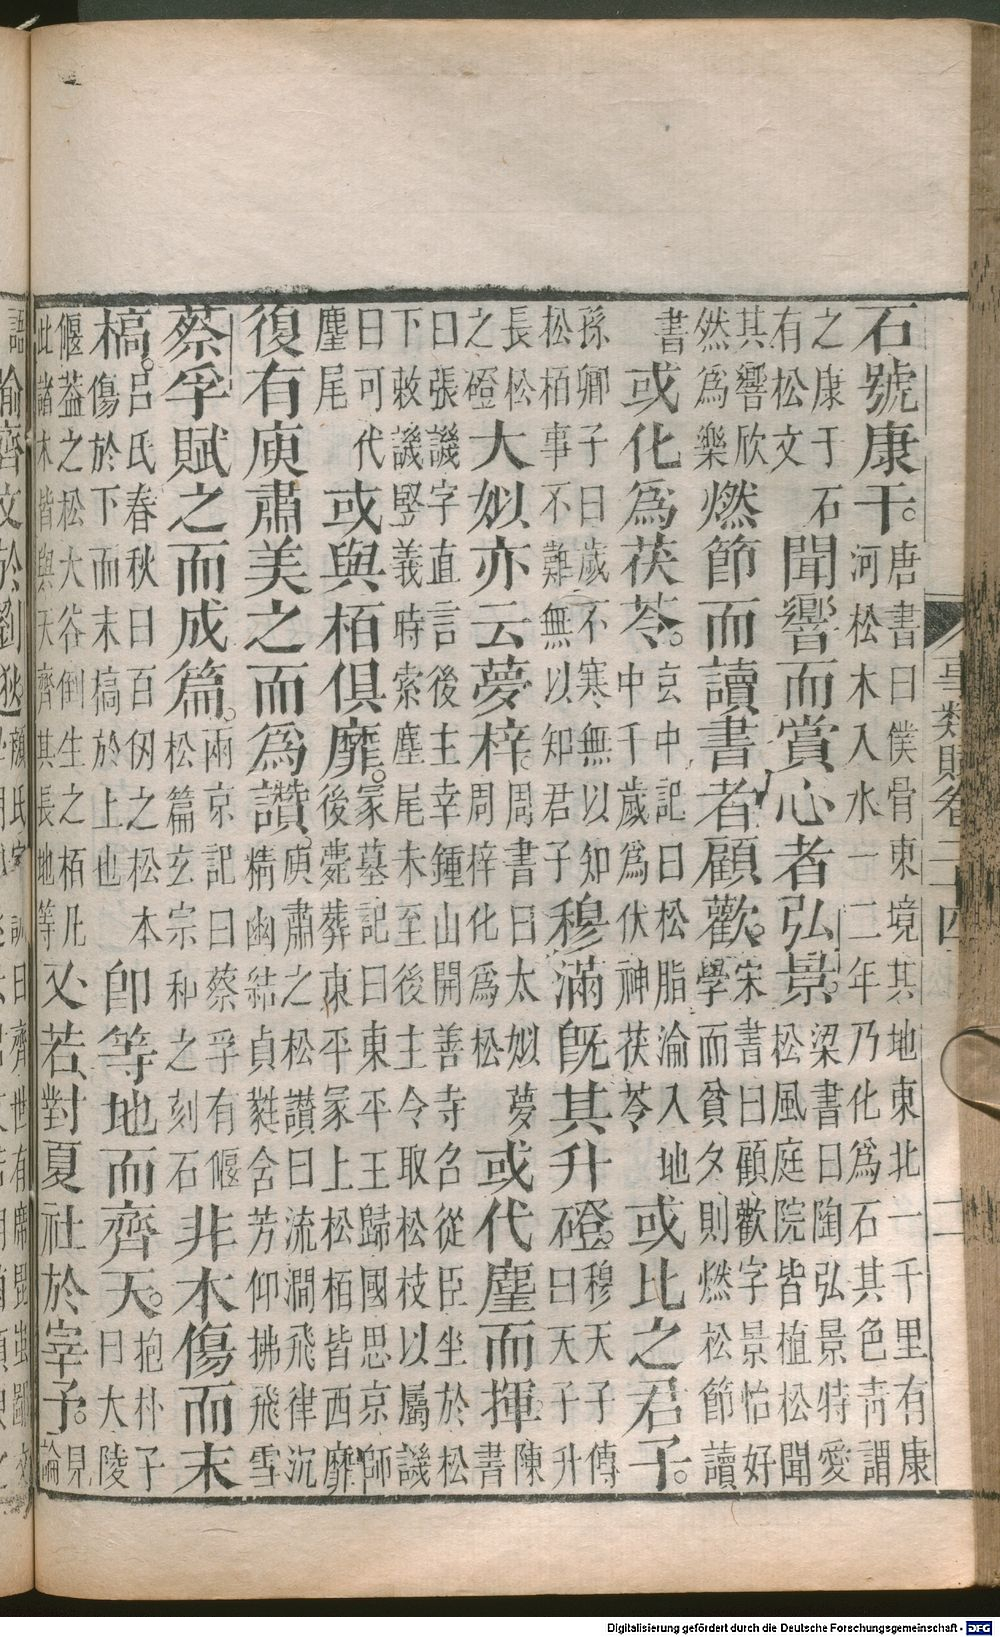 石號康干。唐書曰僕骨東境其地東北一千里有康
河松木入水一二年乃化為石其色靑謂
之康于石
有松文
聞響而賞心者弘景。梁書曰陶弘景特愛
松風庭院皆植松聞
其響欣
然為樂
燃節而讀書者顧歡。宋書曰顧歡字景怡好
學而貧夕則燃松節讀
書
或化為茯苓。玄中記曰松脂淪入地
中千歲為伏神茯苓
或比之君子。
孫卿子曰歲不寒無以知
松栢事不難無以知君子
穆滿旣其升磴。穆天子傳
曰天子升
長松
之磴
大姒亦云夢梓。周書曰太姒夢
周梓化為松
或代麈而揮。陳
書
曰張譏字直言後主幸鍾山開善寺召從臣坐於松
下敕譏竪義時索麈尾未至後主令取松枝以屬譏
曰可代
麈尾
或與栢俱靡。冡墓記曰東平王歸國思京師
後薨葬東平冡上松栢皆西靡
復有庾肅美之而為讚。庾肅之松讃曰流澗飛律沉
精幽結貞蕤含芳仰拂飛雪
蔡孚賦之而成篇。兩京記曰蔡孚有偃
松篇玄宗和之刻石
非木傷而末
槁。呂氏春秋曰百仞之松本
傷於下而末槁於上也
卽等地而齊天。抱朴子
曰大陵
偃葢之松大谷倒生之栢凡
此諸木皆與天齊其長地等
又若對夏社於宰予。見
論
事類賦卷二十四 二
語
喻齊文於劉
Digitalisierung gefördert durch die Deutsche Forschungsgemeinschaft - DFG